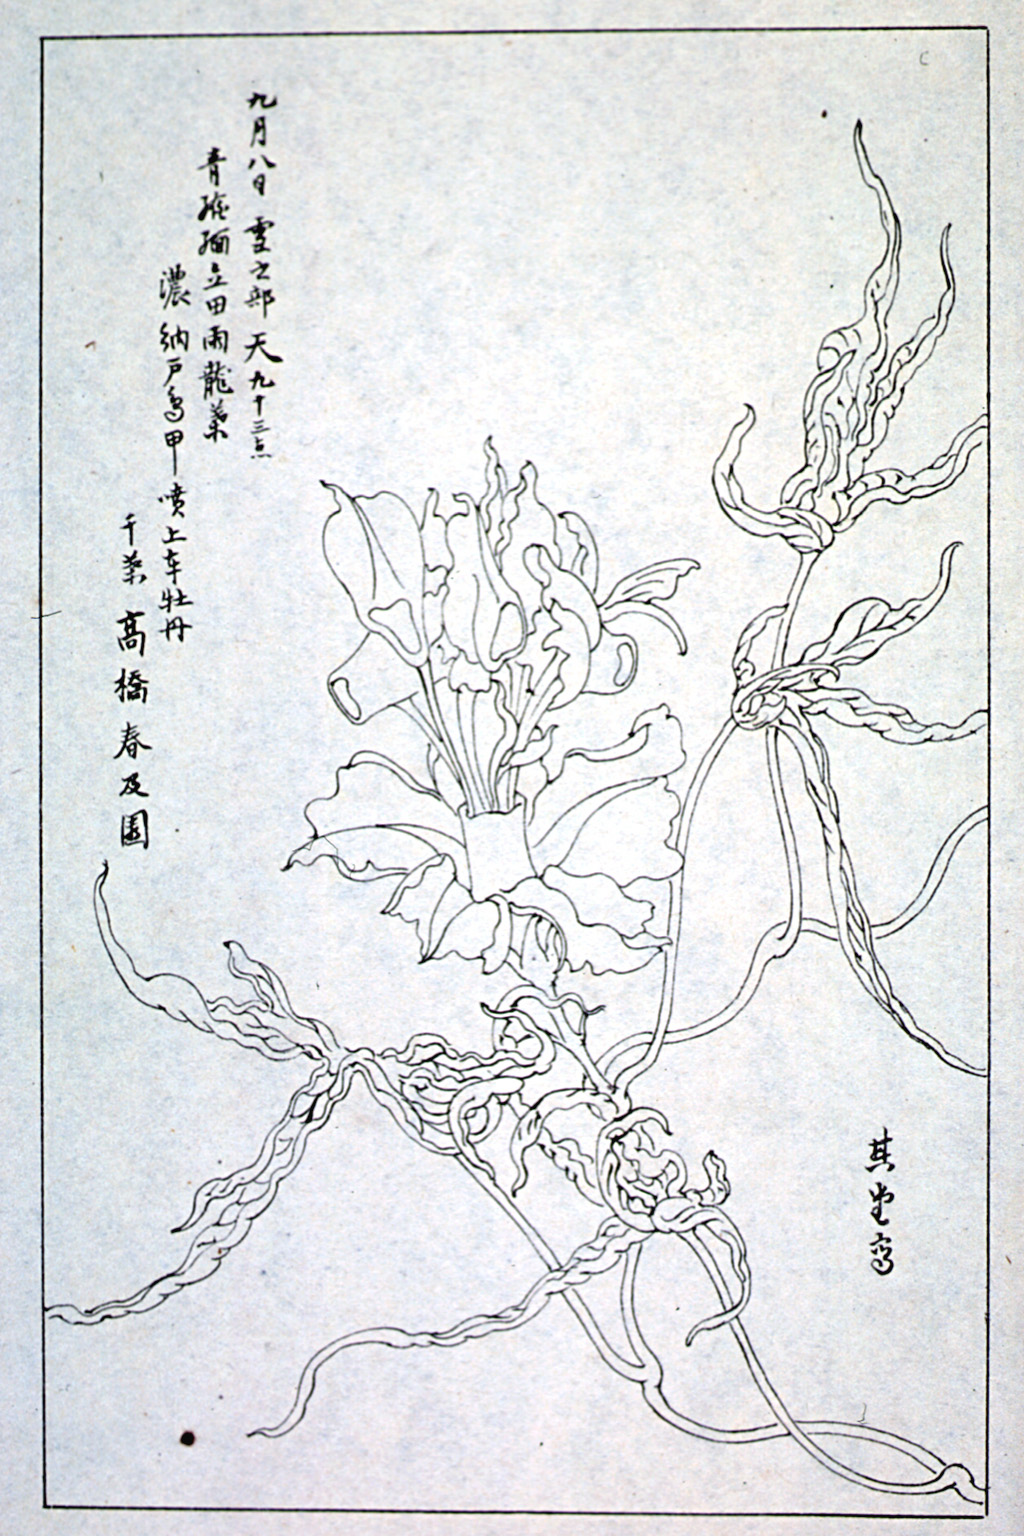 九月八日 雪之部 天 九十三点
青 縮緬立田雨龍葉
濃納戸鳥甲 噴上車牡丹
千葉 高橋春及園
其堂写